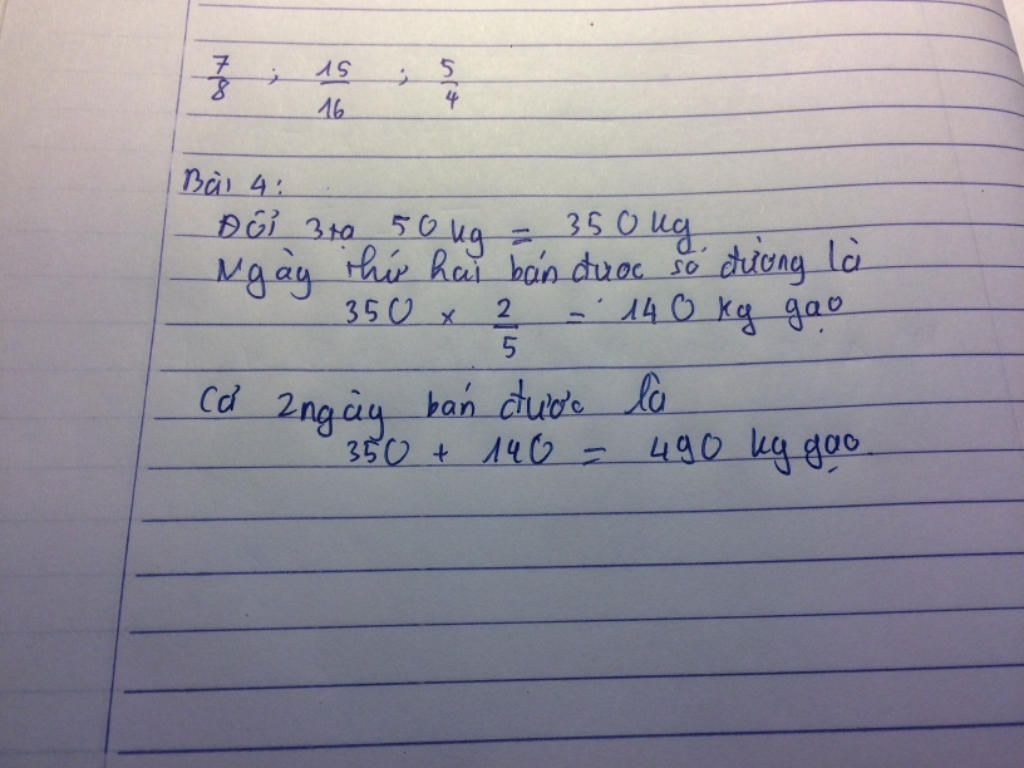 7/8 ; 15/16 ; 5/4
Bài 4:
Đổi 3tạ 50 kg = 350 kg
Ngày thứ hai bán được số đường là
350 x 2/5 = 140 kg gạo
Cả 2 ngày bán được là
350 + 140 = 490 kg gạo